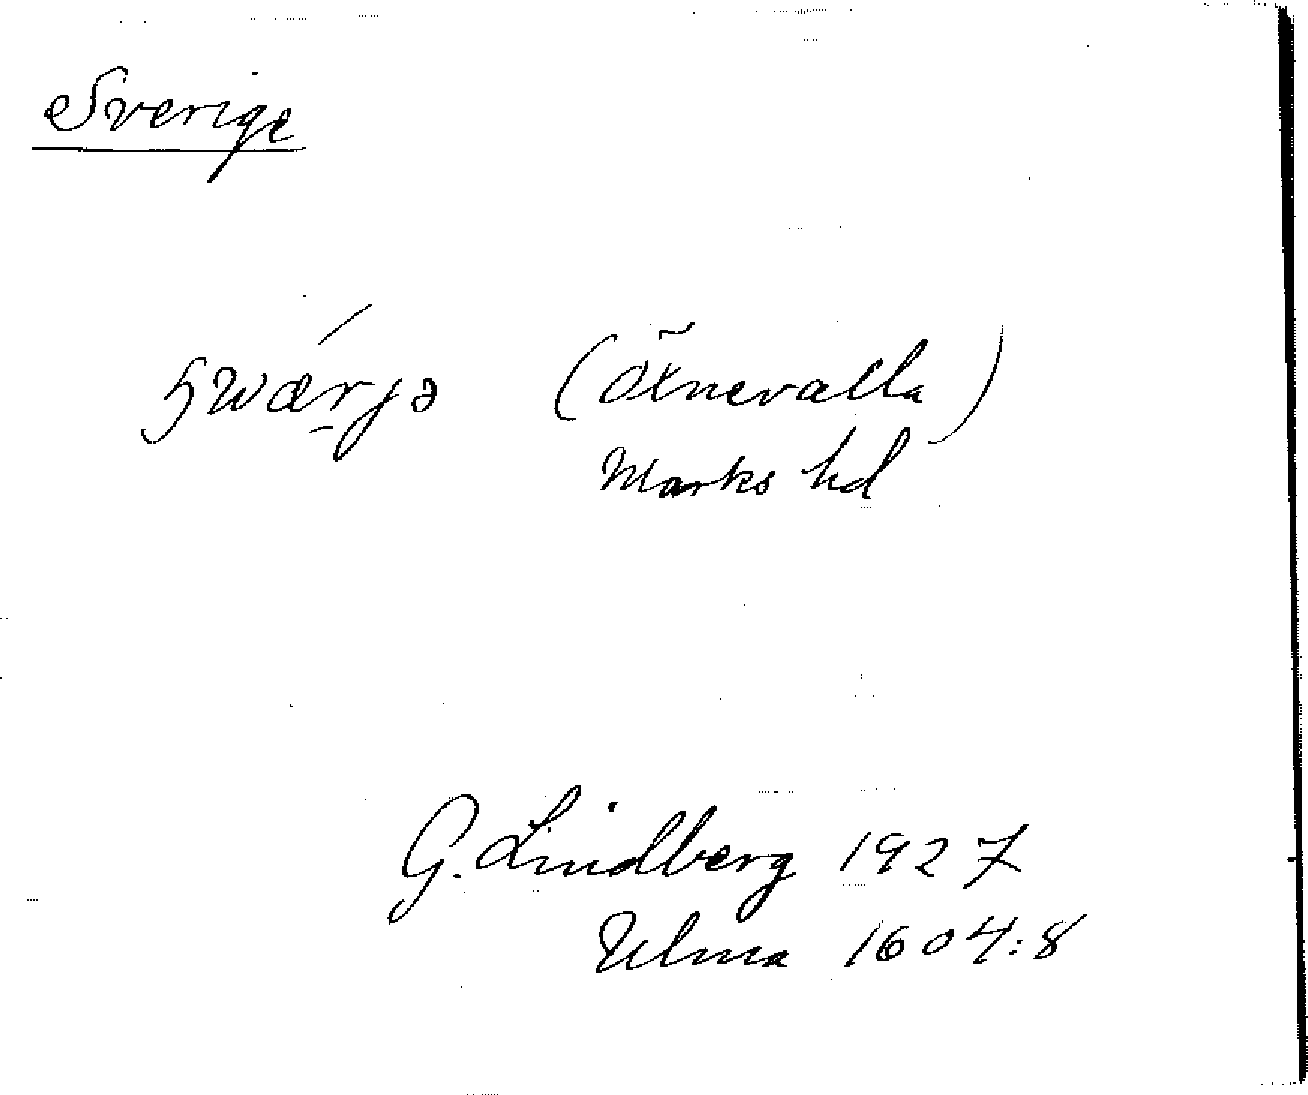 Sverige
ꞕwǽrjə (Öxnevalla)
Marks hd
G. Lindberg 1927
Ulma 1604:8